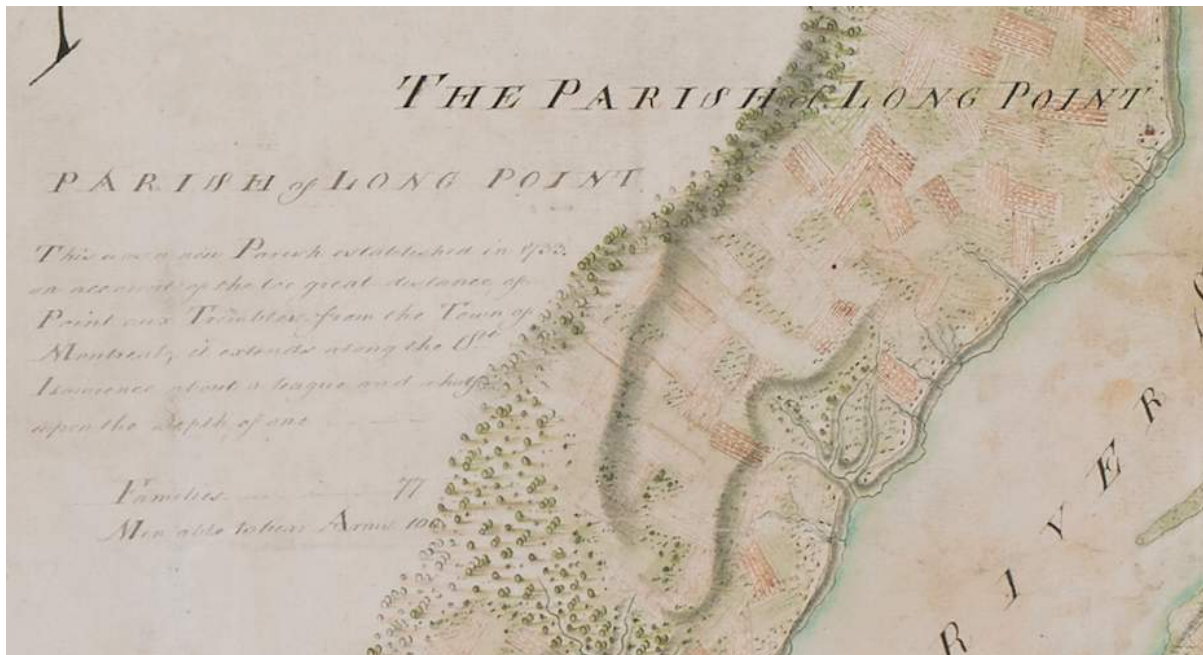 THE PARISH of LONG POINT
PARISH of LONG POINT
This a new Parish established in
on account of the too great distance of
Point aux Trembles, from the Town of
Montreal; it extends along the St
Lawrence about a league and a half
upon the Depth of one
Families 77
Men able to bear Arms
RIVER